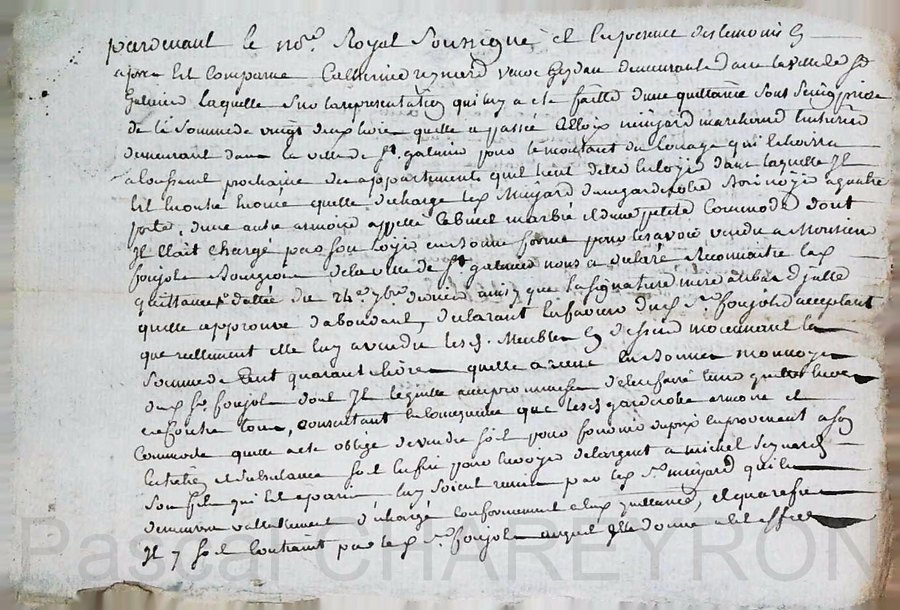 pardevant le no.re Royal Soussigné, et en presence des temoins cy
apres est comparue Catherine reynard veuve demeurante dans la ville de st
Galmier laquelle sur la representation qui luy a eté faitte dune quittance sous seing privé
de la somme de vingt deux livres quelle a passée a Eloix miujard marchand
demeurant dans la ville de st. galmier pour le montant du louage qui echoirra
a la toussaint prochaine des appartements quil tient delle dans laquelle Il
est enoncé quelle decharge led. Miujard dune garderobe noyer a quatre
porte, dune autre armoire appellé Cabinet marbré et dune petite Commode dont
Il etoit chargé par son loyer en bonne forme pour les avoir vendu a Monsieur
foujols Bourgeois de la ville de st galmier nous a declaré Reconnaitre lad.
quittance dattée du 24e 7bre dernier ainsy que la signature mise au bas dicelle
quelle approuve dabondant, declarant en faveur dud. Sr. foujols acceptant
que reellement elle luy a vendu lesd. Meubles cy dessus moyennant la
somme de Cent quarante livres quelle a receu en bonne monnoye
dud. Sr. foujols dont Il le quitte avec promesse de len faire tenir quitte envers
et contre tous, consentant en consequence que lesd garderobe armoire et
Commode quelle a eté obligé de vendre soit pour fournir du prix en provenant a son
Entretien et subsistance soit enfin pour envoyer de largent a michel
son fils qui est a paris, luy soient remis par led. Sr. miujard qui en
demeurera vallablement dechargé conformement a lad. quittance, et quarefus
Il y soit contraint par led. Sr. foujols auquel Elle donne a cet effet
Pascal CHAREYRON